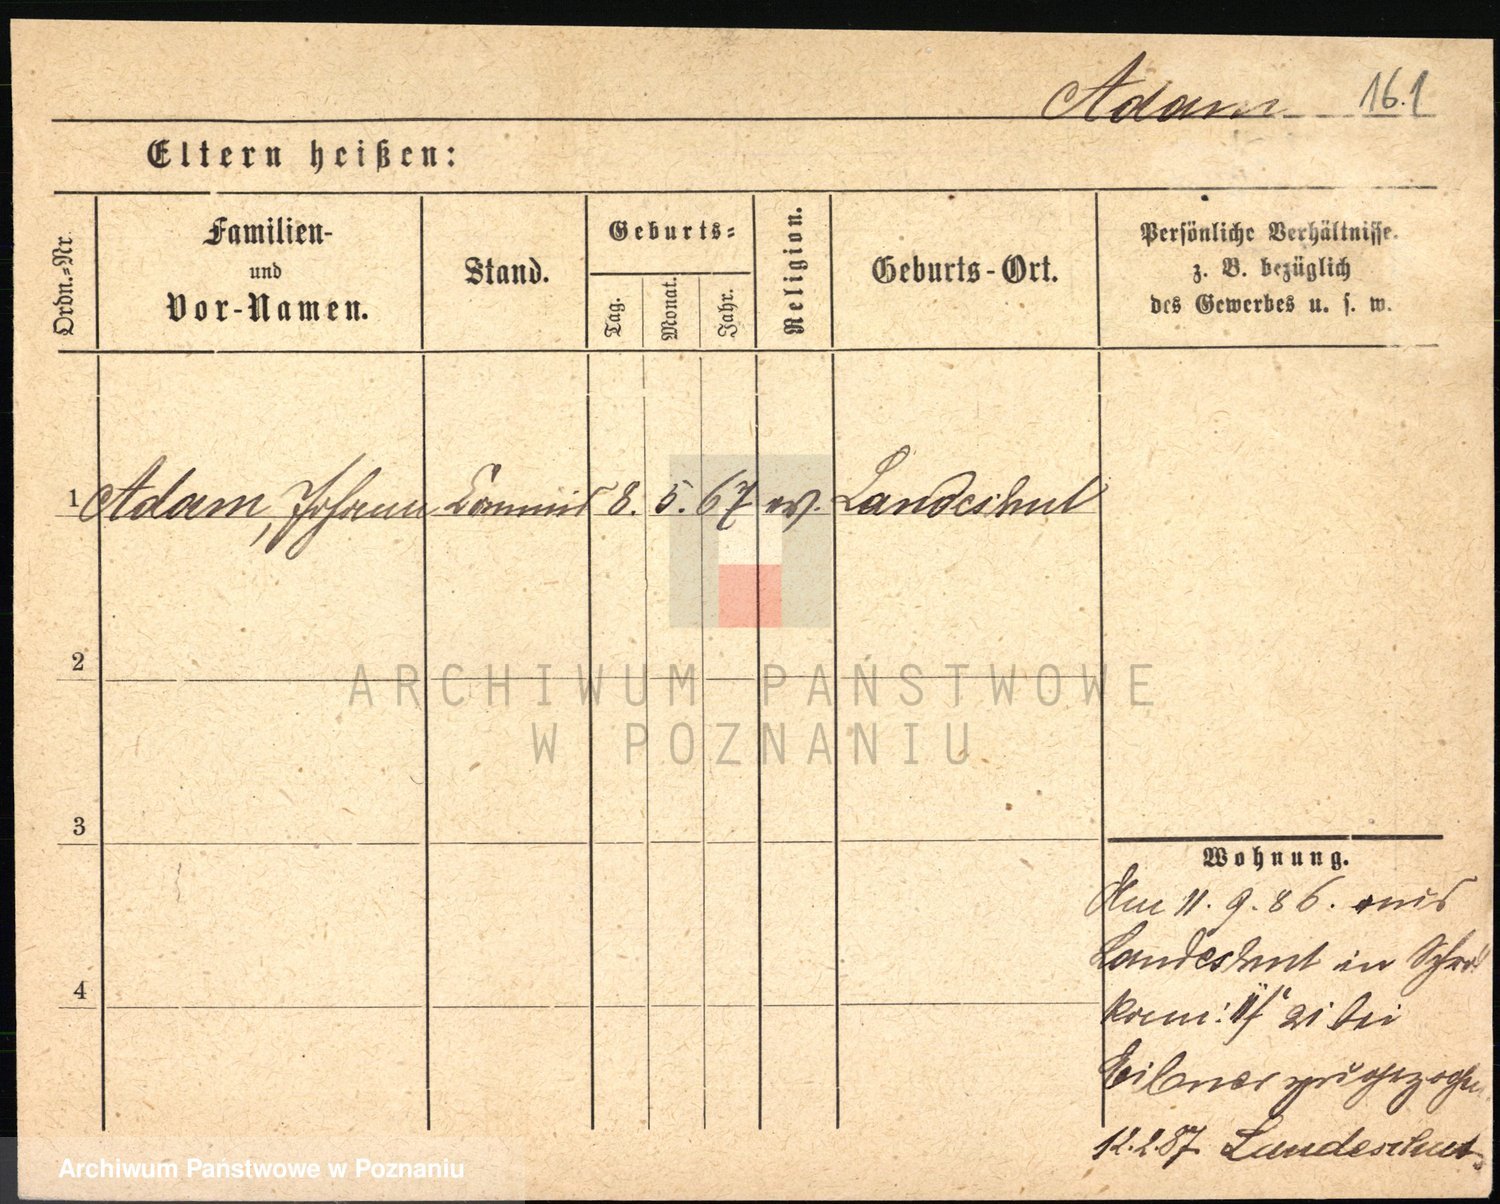 Adam 16.1
Eltern heißen:
Ordn.-Nr.
Familien-
und
Vor-Namen.
Stand.
Geburts-
Tag.
Monat.
Jahr.
Religion.
Geburts-Ort.
Persönliche Verhältnisse.
z. B. bezüglich
des Gewerbes u. s. w.
1 Adam, Johann Commis 8. 5. 67 ev. Landeshut
2
3
4
ARCHIWUM PAŃSTWOWE
W POZNANIU
Wohnung.
Am 11. 9. 86. aus
Landeshut in
21 bei
zugezogen
12.2.87. Landeshut.
Archiwum Państwowe w Poznaniu